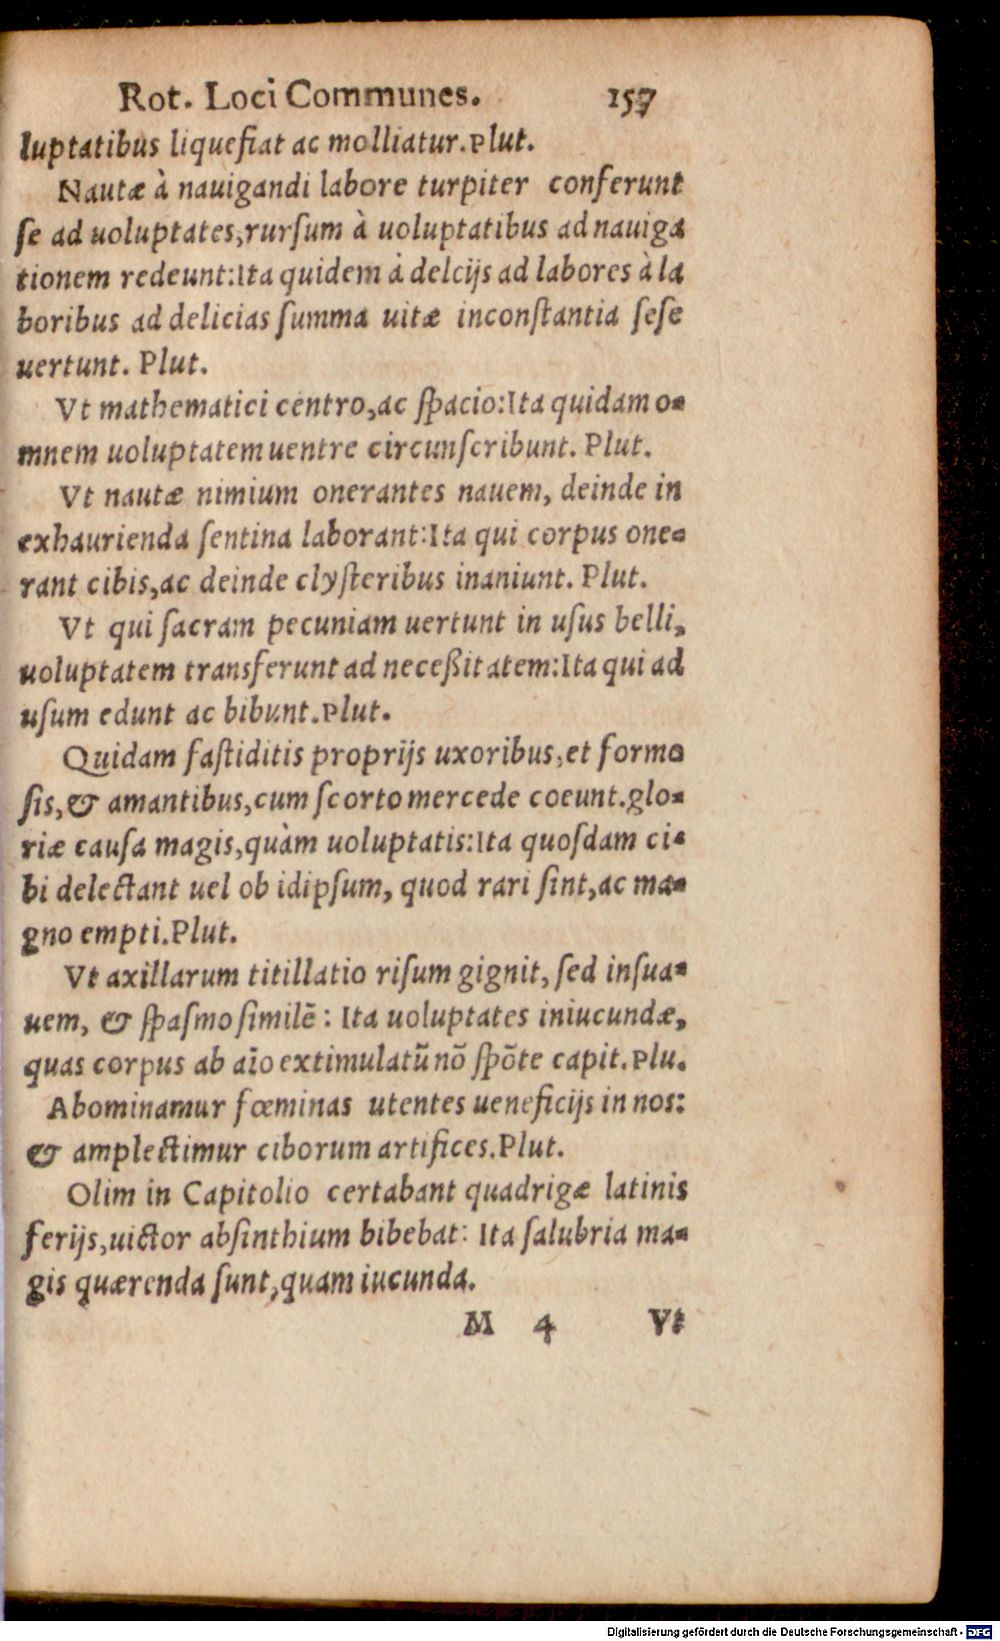 Rot. Loci Communes. 157
luptatibus liquefiat ac molliatur.Plut.
Nautæ à nauigandi labore turpiter conferunt
ſe ad uoluptates,rurſum à uoluptatibus ad nauiga
tionem redeunt:Ita quidem à delcijs ad labores à la
boribus ad delicias ſumma uitæ inconſtantia ſeſe
uertunt. Plut.
Vt mathematici centro,ac ſpacio:Ita quidam o-
mnem uoluptatem uentre circunſcribunt. Plut.
Vt nautæ nimium onerantes nauem, deinde in
exhaurienda ſentina laborant:Ita qui corpus one-
rant cibis,ac deinde clyſteribus inaniunt. Plut.
Vt qui ſacram pecuniam uertunt in uſus belli,
uoluptatem transferunt ad neceßitatem:Ita qui ad
uſum edunt ac bibunt.Plut.
Quidam faſtiditis proprijs uxoribus,et formo
ſis,& amantibus,cum ſcorto mercede coeunt.glo-
riæ cauſa magis,quàm uoluptatis:Ita quoſdam ci-
bi delectant uel ob idipſum, quod rari ſint,ac ma-
gno empti.Plut.
Vt axillarum titillatio riſum gignit, ſed inſua-
uem, & ſpaſmo ſimilẽ: Ita uoluptates iniucundæ,
quas corpus ab aĩo extimulatũ nõ ſpõte capit.Plu.
Abominamur fœminas utentes ueneficijs in nos:
& amplectimur ciborum artifices.Plut.
Olim in Capitolio certabant quadrigæ latinis
ferijs,uictor abſinthium bibebat: Ita ſalubria ma-
gis quærenda ſunt,quam iucunda.
M 4 Vt
Digitalisierung gefördert durch die Deutsche Forschungsgemeinschaft - DFG